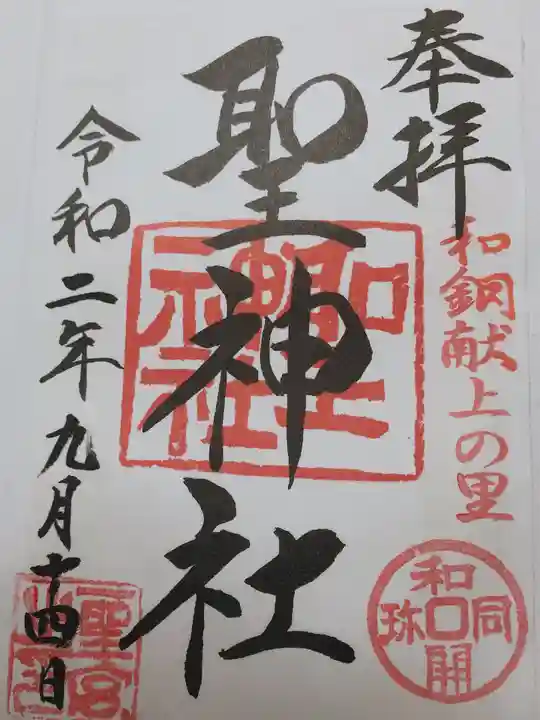 奉拝
和銅献上の里
和同開珎
聖神社
聖神社
令和二年九月十四日